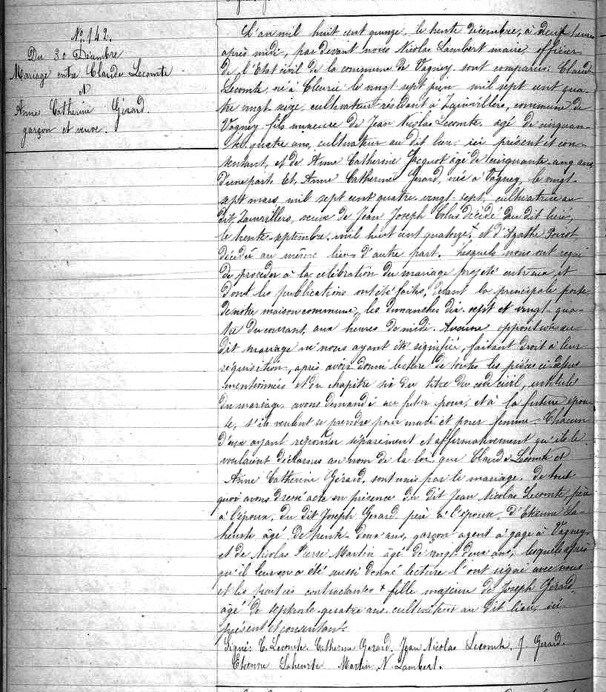 No 142.
Du 30 Décembre
Mariage entre Claude Lecomte
&
Anne Catherine Gerard.
garçon et veuve.
L'an mil huit cent quinze, le trente décembre, à deux heures
après midi, par devant nous Nicolas Lambert maire officier
de l'Etat civil de la commune de Vagney sont comparus Claude
Lecomte né à Cleurie le vingt sept juin mil sept cent qua
tre vingt seize cultivateur résidant à Zainvillers, commune de
Vagney fils mineur de Jean Nicolas Lecomte, agé de cinquan
te quatre ans, cultivateur au dit lieu, ici présent et con
sentant, et de Anne Catherine Jacquot âgé de cinquante cinq ans
d'une part. Et, Anne Catherine Gerard, née à Vagney, le vingt
sept mars mil sept cent quatre vingt sept, cultivatrice au
dit Zainvillers, veuve de Jean Joseph décédé au dit lieu,
le trente septembre mil huit cent quatorze, et d'Agathe
décédée au même lieu d'autre part. Lesquels nous ont requis
de procéder à la célébration du mariage projeté entr'eux et
dont les publications ont été faites, devant la principale porte
de notre maison commune, les dimanches dix sept et vingt qua
tre du courant, aux heures de midi. Aucune opposition au
dit mariage ne nous ayant été signifiée, faisant droit à leur
réquisition, après avoir donné lecture de toutes les pièces ci dessus
mentionnées et du chapitre six du titre du code civil, intitulé
du mariage avons demandé au futur époux, et à la future épou
se, s'ils veulent se prendre pour mari et pour femme. Chacun
d'eux ayant répondu séparément et affirmativement qu'ils le
voulaient déclarons au nom de la loi que Claude Lecomte et
Anne Catherine Gérard, sont unis par le mariage. de tout
quoi avons dressé acte en présence du dit Jean Nicolas Lecomte, père
à l'époux. Du dit Joseph Gerard père à l'épouse. d'Etienne La
heurte âgé de trente-deux ans, garçon agent à gage à Vagney
et de Nicolas Pierre Martin âgé de vingt deux ans, lesquels après
qu'il leur en a été aussi donné lecture l'ont signé avec nous
et les parties contractantes + fille majeure de Joseph Gérard
âgé de septante quatre ans cultivateur au dit lieu, ici
présent et consentant.
Signé: C. Lecomte. Catherine Gerard. Jean Nicolas Lecomte. J. Gerard.
Etienne Laheurte Martin N. Lambert.